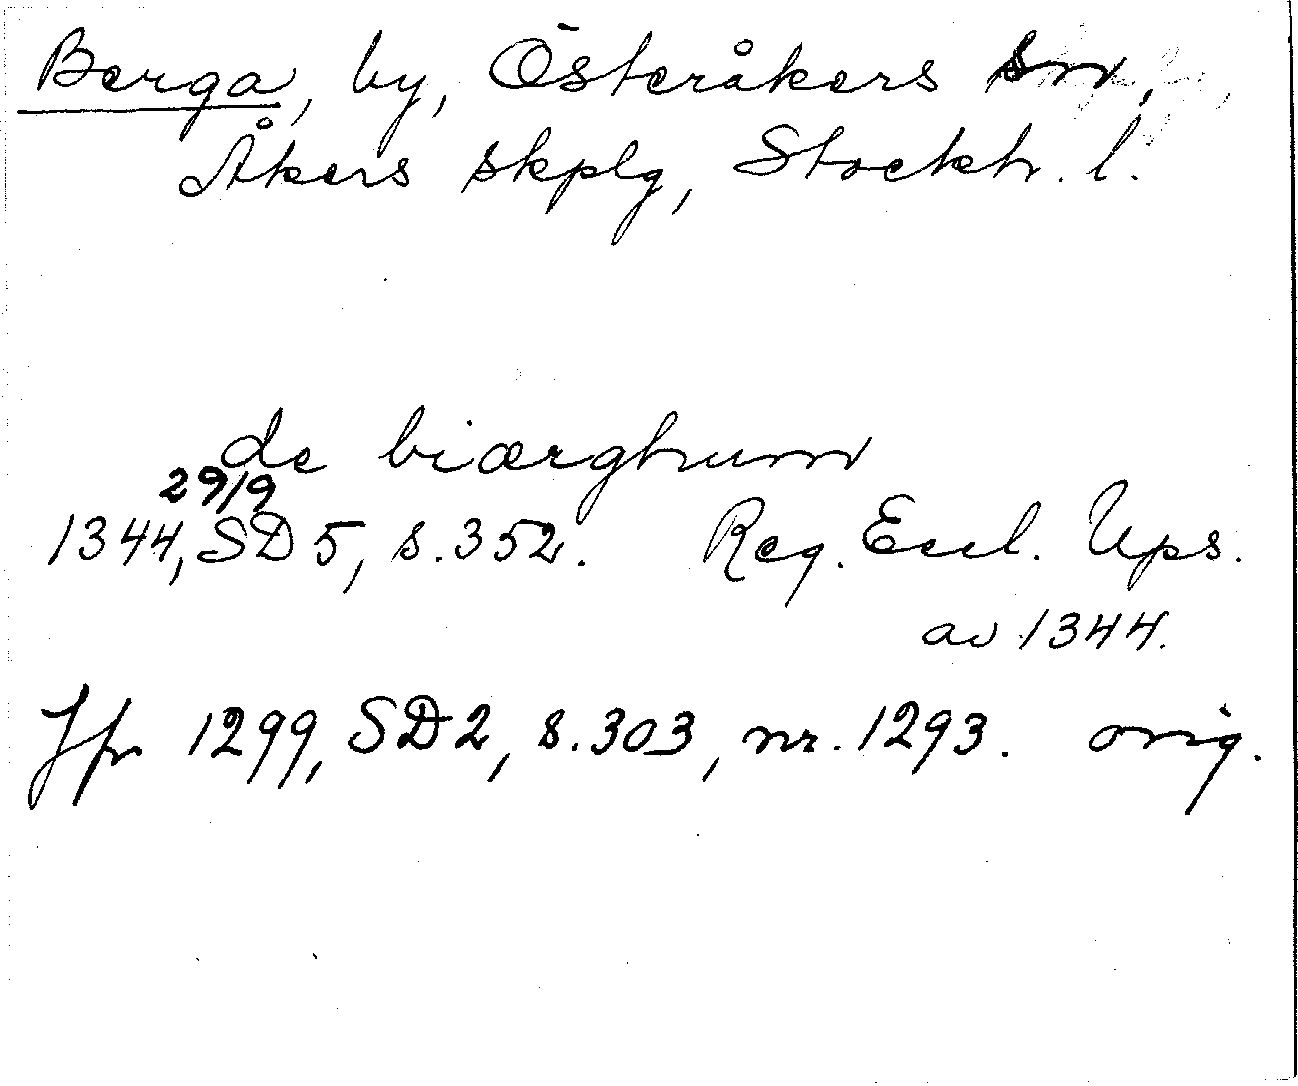 Berga, by, Österåkers sn,
Åkers skplg, Stockh. l.
de biærghum
29/9
1344, SD 5, s. 352. Reg. Eccl. Ups.
av 1344.
Jfr 1299, SD 2, s. 303, nr. 1293. orig.